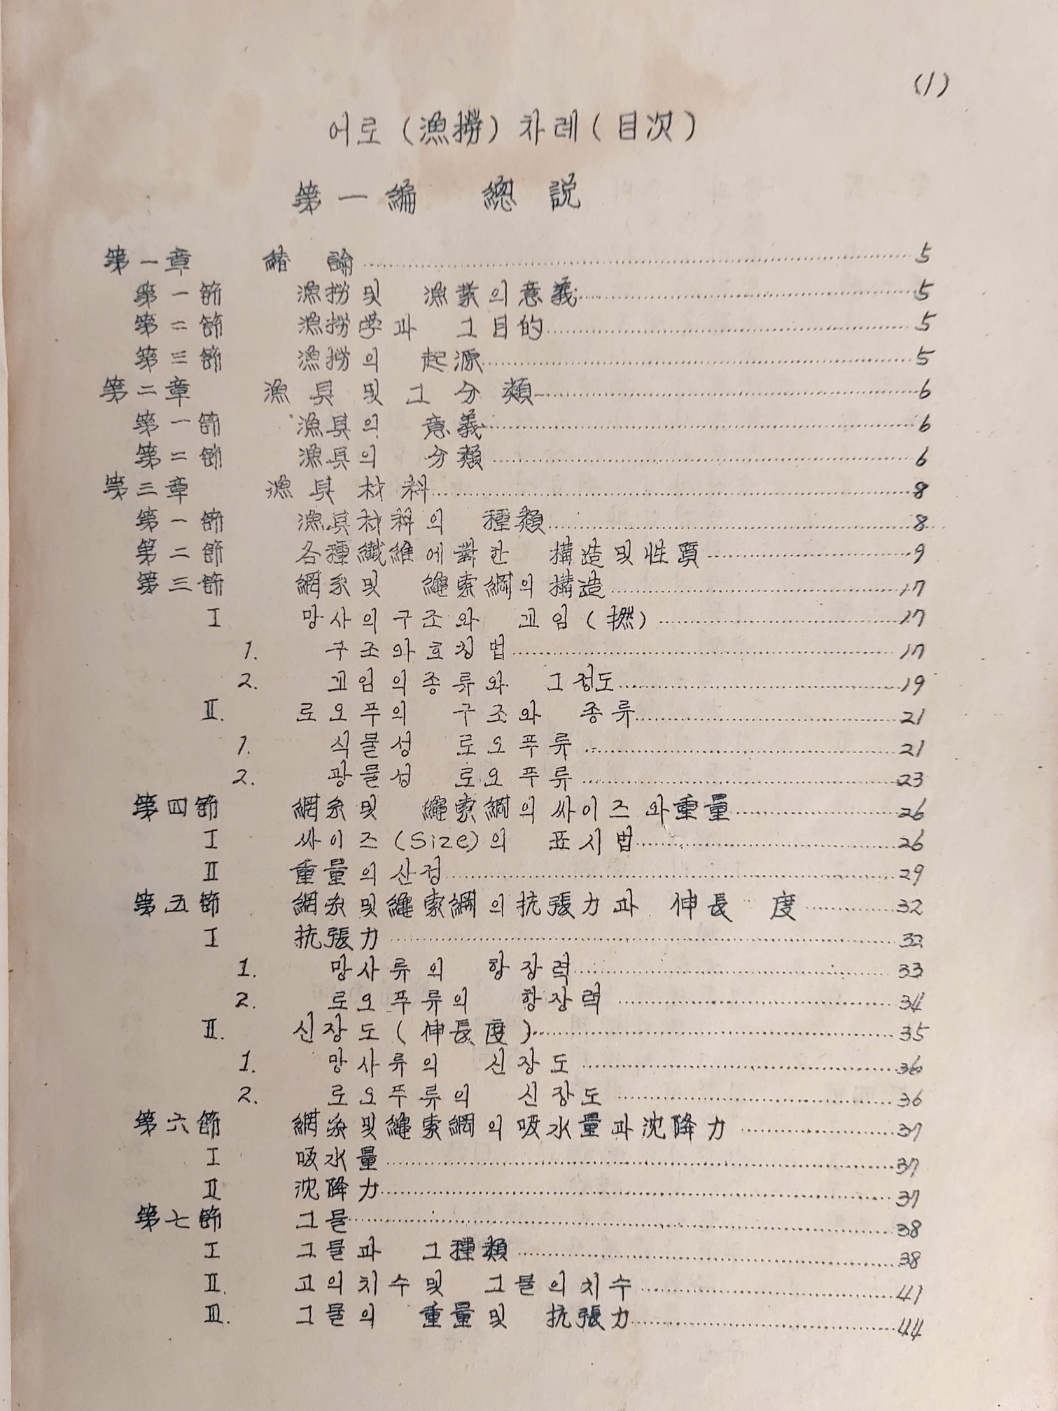 (1)
어로 (漁撈) 차례 (目次)
第一編 總說
第一章 緖論 5
第一節 漁撈 및 漁業의 意義 5
第二節 漁撈学과 그 目的 5
第三節 漁撈의 起源 5
第二章 漁具 및 그 分類 6
第一節 漁具의 意義 6
第二節 漁具의 分類 6
第三章 漁具材料 8
第一節 漁具材料의 種類 8
第二節 各種纖維에 對한 構造 및 性質 9
第三節 網糸 및 繩索綱의 構造 17
I 망사의 구조와 꼬임 (撚) 17
1. 구조와 호칭법 17
2. 꼬임의 종류와 그 정도 19
II. 로오푸의 구조와 종류 21
1. 식물성 로오푸류 21
2. 광물성 로오푸류 23
第四節 網糸 및 繩索綱의 싸이즈와 重量 26
I 싸이즈 (Size)의 표시법 26
II 重量의 산정 29
第五節 網糸 및 繩索綱의 抗張力과 伸長度 32
I 抗張力 32
1. 망사류의 항장력 33
2. 로오푸류의 항장력 34
II. 신장도 (伸長度) 35
1. 망사류의 신장도 36
2. 로오푸류의 신장도 36
第六節 網糸 및 繩索綱의 吸水量과 沈降力 37
I 吸水量 37
II 沈降力 37
第七節 그물 38
I 그물과 그 種類 38
II. 코의 치수 및 그물의 치수 41
III. 그물의 重量 및 抗張力 44